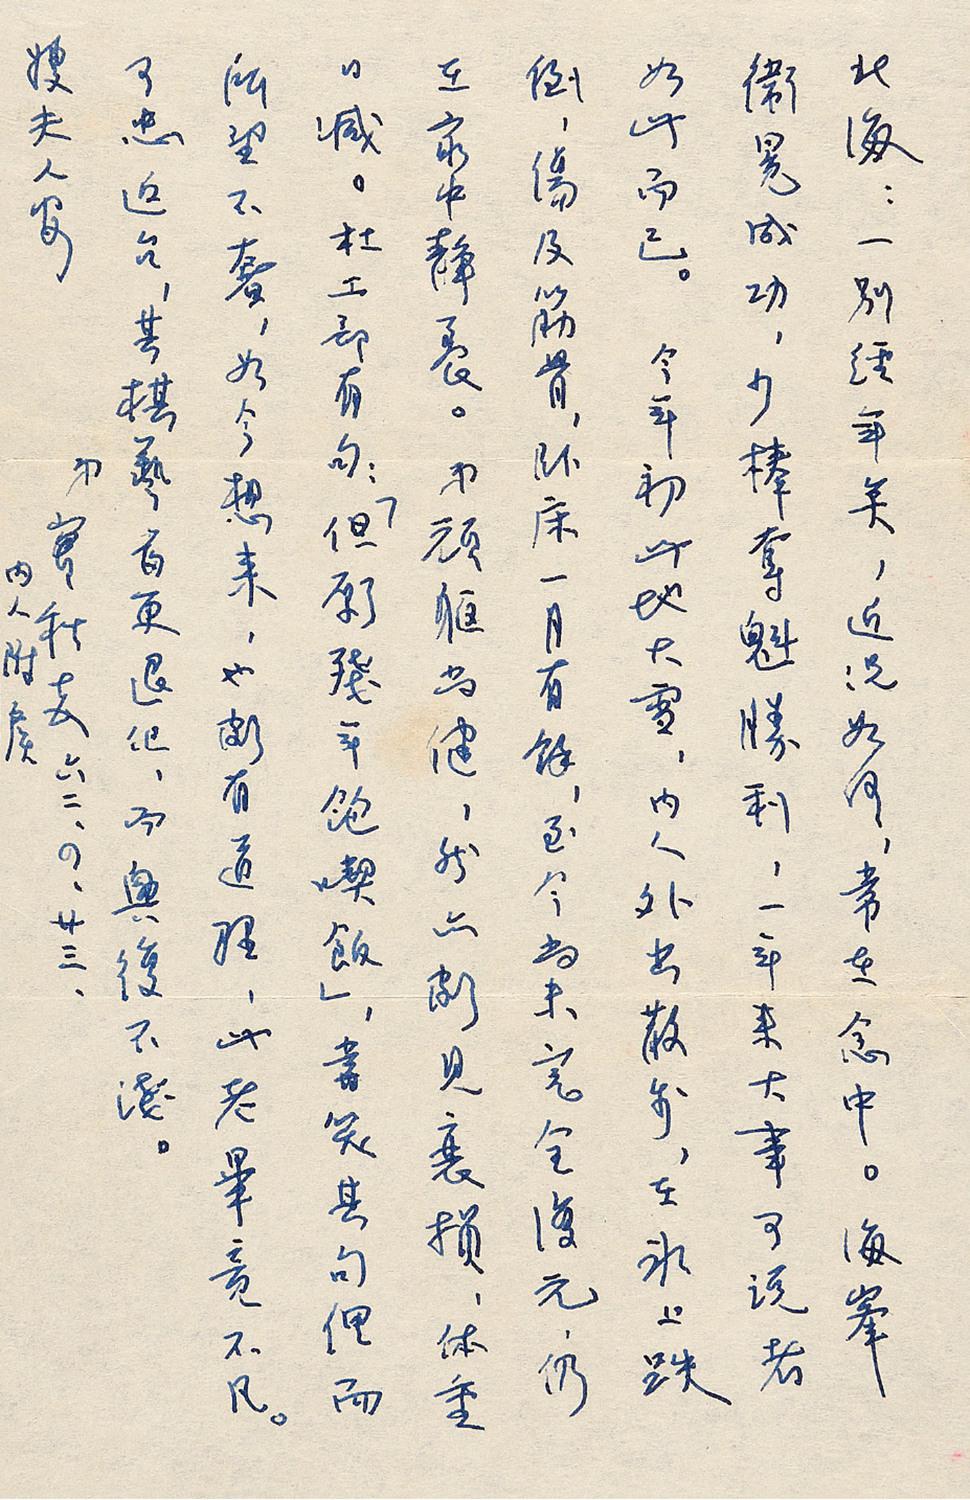 北海：一别經年矣，近況如何，常在念中。海峯
衛冕成功，少棒奪魁勝利，一年来大事可說者
如此而已。今年初此地大雪，内人外出散步，在冰上跌
倒，傷及筋骨，卧床一月有餘，至今尚未完全復元，仍
在家中靜養。弟頑軀尚健，然亦頗見衰損，体重
日減。杜工部有句：「但願殘年飽喫飯」，嘗笑其句俚而
所望不奢，如今想来，也頗有道理，此老畢竟不凡。
可忠近台，其棋藝當更退化，而興復不淺。
弟 實秋 六二、四、廿三、
内人附候
嫂夫人安